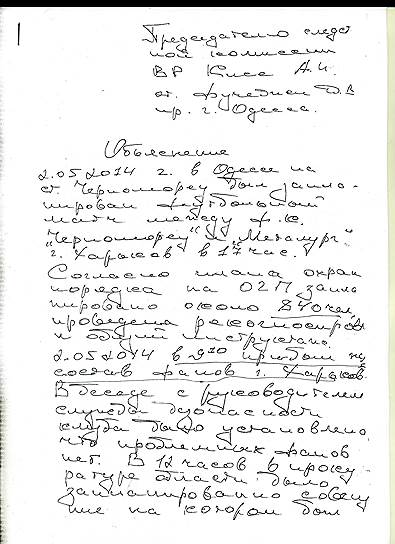 1
Председателю следст
ной комиссии
ВР Кисса А.И.
от Фучеджи Д.В
пр. г. Одесса.
Объяснение
2.05.2014 г. в Одессе на
ст. Черноморец был запла-
нирован футбольный
матч между ф.к.
"Черноморец" и "Металург"
г. Харьков в 17 час.
Согласно плана охран
порядка на ОЗП запла
нировано около 870 чел,
проведена рекогносциров
и общий инструктаж.
2.05.2014 в 9 10 прибыл
состав фанов г. Харьков.
В беседе с руководителем
службы безопасности
клуба было установлено,
что проблемных фанов
нет. В 12 часов в проку-
ратуре области было
запланированно совещ
ние на котором был